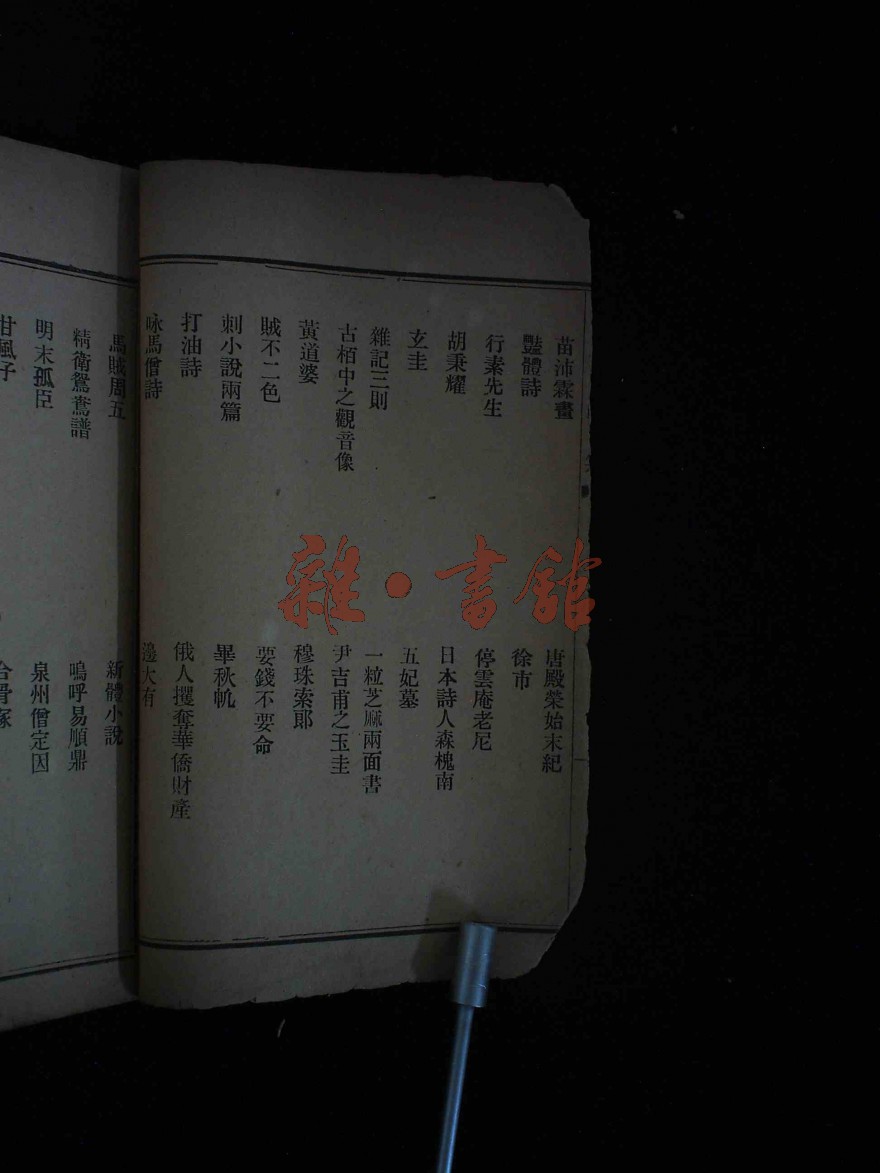 苗沛霖畫
唐殿榮始末紀
豔體詩
徐市
行素先生
停雲庵老尼
胡秉耀
日本詩人森槐南
玄圭
五妃墓
雜記三則
一粒芝麻兩面書
古栢中之觀音像
尹吉甫之玉圭
黃道婆
穆珠索郞
賊不二色
要錢不要命
刺小說兩篇
畢秋帆
打油詩
俄人攫奪華僑財產
咏馬僧詩
邊大有
馬賊周五
新體小說
精衛鴛鴦譜
嗚呼易順鼎
明末孤臣
泉州僧定因
甘瘋子
合骨冢
雜·書館